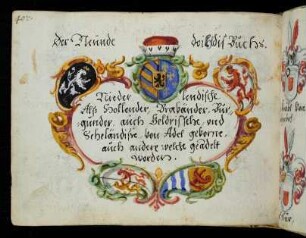 Der Neunde
dises Buchs.
Nieder ländische
Alß Hollender, Brabänder, Bur-
gunder, auch Geldrische, vnd
Seheländische von Adel geborne,
auch andere welche geädelt
worden.